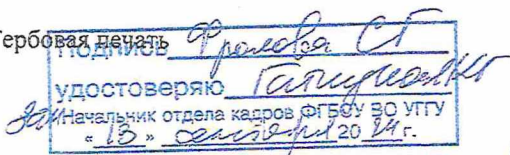 Гербовая печать
Подпись Фролова СГ
удостоверяю
Зам Начальник отдела кадров ФГБОУ ВО УГГУ
« 13 » сентября 20 24 г.